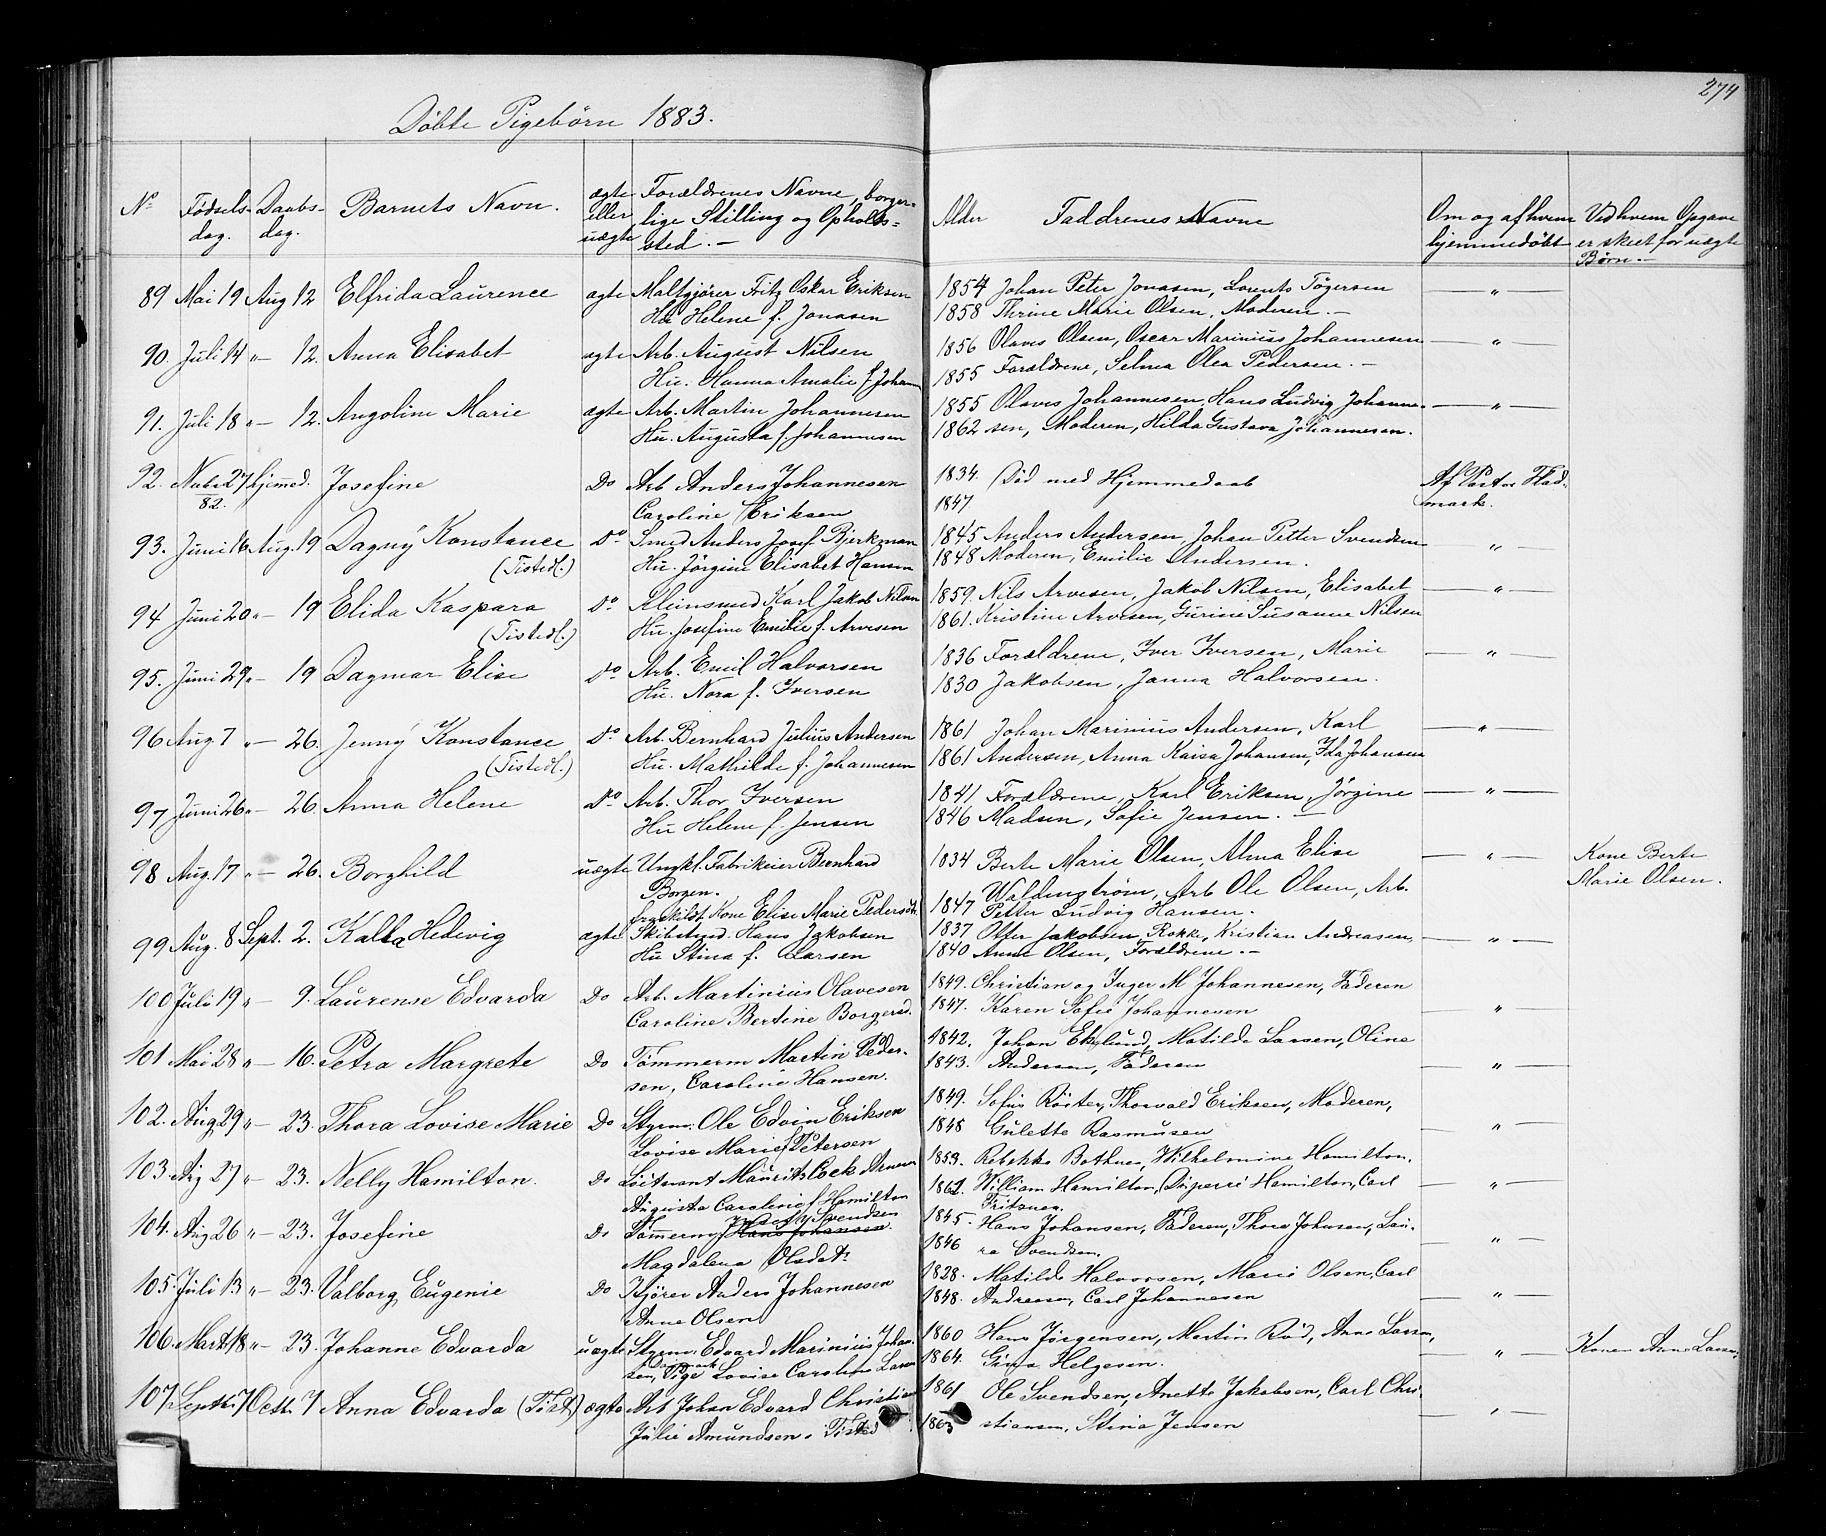 274
Döbte Pigebörn 1883.
No Fødsels- Daabs- Barnets Navn. ægte Forældrenes Navne, borger- Alder Faddrenes Navne Om og af hvem Ved hvem Opgave
dag. dag. eller lige Stilling og Opholds- hjemmedöbt er skeet for uægte
uægte sted. — Börn. —
89 Mai 19 Aug 12 Elfrida Laurence ægte Maltgjörer Fritz Oskar Eriksen 1854 Johan Peter Jonasen, Lorents Tögersen — „ —
Hu Helene f. Jonasen 1858 Thrine Marie Olsen, Moderen. —
90. Juli 14 „ — 12. Anna Elisabet ægte Arb. August Nilsen 1856 Olaves Olsen, Oscar Marinius Johannesen — „ —
Hu. Hanna Amalie f. Johann 1855 Forældrene, Selma Olea Pedersen. —
91. Juli 18 „ — 12. Angoline Marie ægte Arb. Martin Johannesen 1855 Olaves Johannesen, Hans Ludvig Johanne- — „ —
Hu. Augusta f. Johannesen 1862 sen, Moderen, Hilda Gustava Johannesen.
92. Nvbr 27 hjemmed. Josefine Do Arb Anders Johannesen 1834. Död med Hjemmedaab Af Pastor Flad-
82. Caroline Eriksen 1847 mark.
93. Juni 16 Aug. 19 Dagny Konstance Do Smed Anders Josef Bjerkman 1845 Anders Andersen, Johan Petter Svendsen — „ —
(Tistedl.) Hu. Jørgine Elisabet Hansen 1848 Moderen, Emilie Andersen.
94 Juni 20 „ — 19 Elida Kaspara Do Kleinsmed Karl Jakob Nilsen 1859. Nils Arvesen, Jakob Nilsen, Elisabet — „ —
(Tistedl.) Hu. Josefine Emilie f. Arvesen 1861. Kristine Arvesen, Gurine Susanne Nilsen
95. Juni 29 „ — 19 Dagmar Elise Do Arb. Emil Halvorsen 1836 Forældrene, Iver Iversen, Marie — „ —
Hu. Nora f. Iversen 1830 Jakobsen, Janna Halvorsen.
96 Aug 7 „ — 26. Jenny Konstance Do Arb. Bernhard Julius Andersen 1861 Johan Marinius Andersen, Karl — „ —
(Tistedl.) Hu. Mathilde f. Johannesen 1861 Andersen, Anna Kaisa Johansen, Ida Johansen
97 Juni 26 „ — 26. Anna Helene Do Arb. Thor Iversen 1841 Forældrene, Karl Eriksen, Jörgine — „ —
Hu Helene f. Jensen 1846 Madsen, Sofie Jensen. —
98 Aug. 17 „ — 26. Borghild uægte Ungkl. Fabrikeier Bernhard 1834 Berte Marie Olsen, Alma Elise — „ — Kone Berte
Borgen. Waldenström, Arb Ole Olsen, Arb. Marie Olsen.
fraskildt Kone Elise Marie Pedersdt. 1847 Petter Ludvig Hansen.
99 Aug. 8 Sept. 2. Kalla Hedevig ægte Skibstmd. Hans Jakobsen 1837 Otter Jakobsen Rokke, Kristian Andreasen, — „ —
Hu Stina f. Larsen 1840 Anne Olsen, Forældrene. —
100 Juli 19 „ — 9. Laurense Edvarda Do Arb. Martinius Olavesen 1849. Christian og Inger M Johannesen, Faderen
Caroline Bertine Borgersd. 1847. Karen Sofie Johannesen — „ —
101 Mai 28 „ — 16. Petra Margrete Do Tömmerm Martin Peder- 1842. Johan Eklund, Matilde Larsen, Oline
sen, Caroline Hansen. 1843. Andersen, Faderen — „ —
102. Aug 29 „ — 23. Thora Lovise Marie Do Styrm. Ole Edvin Eriksen 1849. Sofus Röster, Thorvald Eriksen, Moderen,
Lovise Marie f Petersen 1848 Gulette Rasmusen — „ —
103. Aug 27 „ — 23. Nelly Hamilton. Do Löitnant Maurits Cock Arnesen 1853. Rebekka Bothner, Wilhelmine Hamilton,
Augusta Caroline f Hamilton 1862. William Hamilton, Hamilton, Carl — „ —
Fritzner.
104. Aug 26 „ — 23. Josefine Do Tömmerm Josef Svendsen 1845. Hans Johansen, Faderen, Thora Johnsen, Lau-
Hans Johansen
Magdalena Olsdatr 1846 ra Svendsen. — „ —
105. Juli 13 „ — 23. Valborg Eugenie Do Kjörer Anders Johannesen 1828. Matilde Halvorsen, Marie Olsen, Carl
Anne Olsen 1848. Andresen, Carl Johannesen — „ —
106. Marts 18 „ — 23. Johanne Edvarda uægte Styrm. Edvard Marinius Johan- 1860 Hans Jörgensen, Martin Röd, Anne Larsen, — „ — Konen Anne Larsen,
sen, Pige Lovise Caroline Larsen 1864. Gina Helgesen.
107. Septbr 7 Octbr 7 Anna Edvarda (Tist.) ægte Arb Johan Edvard Christian 1861 Ole Svendsen, Anette Jakobsen, Carl Chri-
Julie Amundsen. Tisted 1863 stiansen, Stina Jensen — „ —